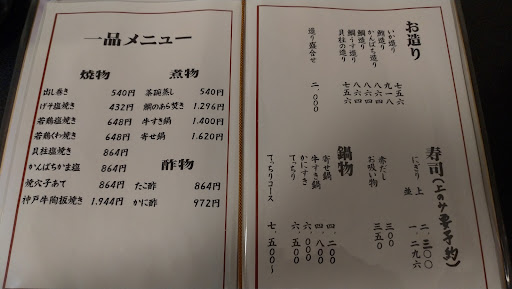 一品メニュー
焼物
出し巻き 540円
げそ塩焼き 432円
若鶏塩焼き 648円
若鶏くわ焼き 648円
貝柱塩焼き 864円
かんぱちかま塩 864円
焼穴子あて 864円
神戸牛陶板焼き 1.944円
煮物
茶碗蒸し 540円
鯛のあら焚き 1.296円
牛すき鍋 1.400円
寄せ鍋 1.620円
酢物
たこ酢 864円
かに酢 972円
お造り
いか造り 七五六
鮪造り 九一八
かんぱち造り 八六四
鯛造り 八六四
鯛うす造り 八六四
貝柱の造り 七五六
造り盛合せ 二、000
寿司(上のみ要予約)
にぎり 上 二、三00
並 一、二九六
赤だし 三00
お吸い物 三五0
鍋物
寄せ鍋 四、二00
牛すき鍋 四、八00
かにすき 六、000
てっちり 六、五00
てっちりコース 七、五00〜